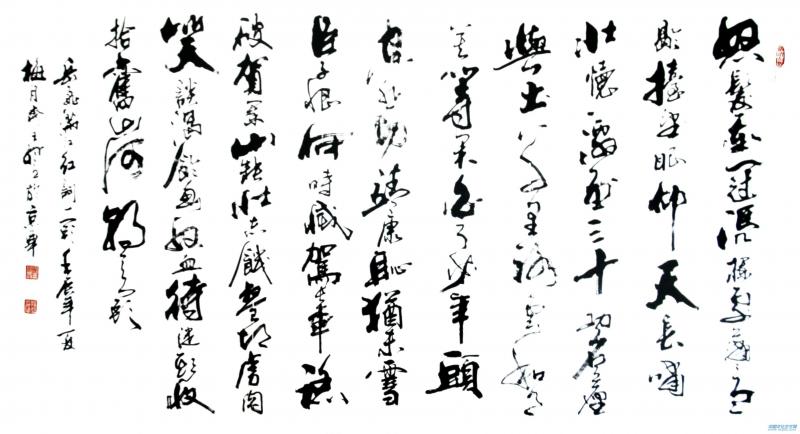 怒髮衝冠憑欄處瀟瀟雨
歇抬望眼仰天長嘯
壯懷激烈三十功名塵
與土八千里路雲和月
莫等閒白了少年頭
空悲切靖康恥猶未雪
臣子恨何時滅駕長車踏
破賀蘭山缺壯志饑餐胡虜肉
笑談渴飲匈奴血待從頭收
拾舊山河朝天闕
岳飛滿江紅詞一首壬辰年夏
梅月於京華